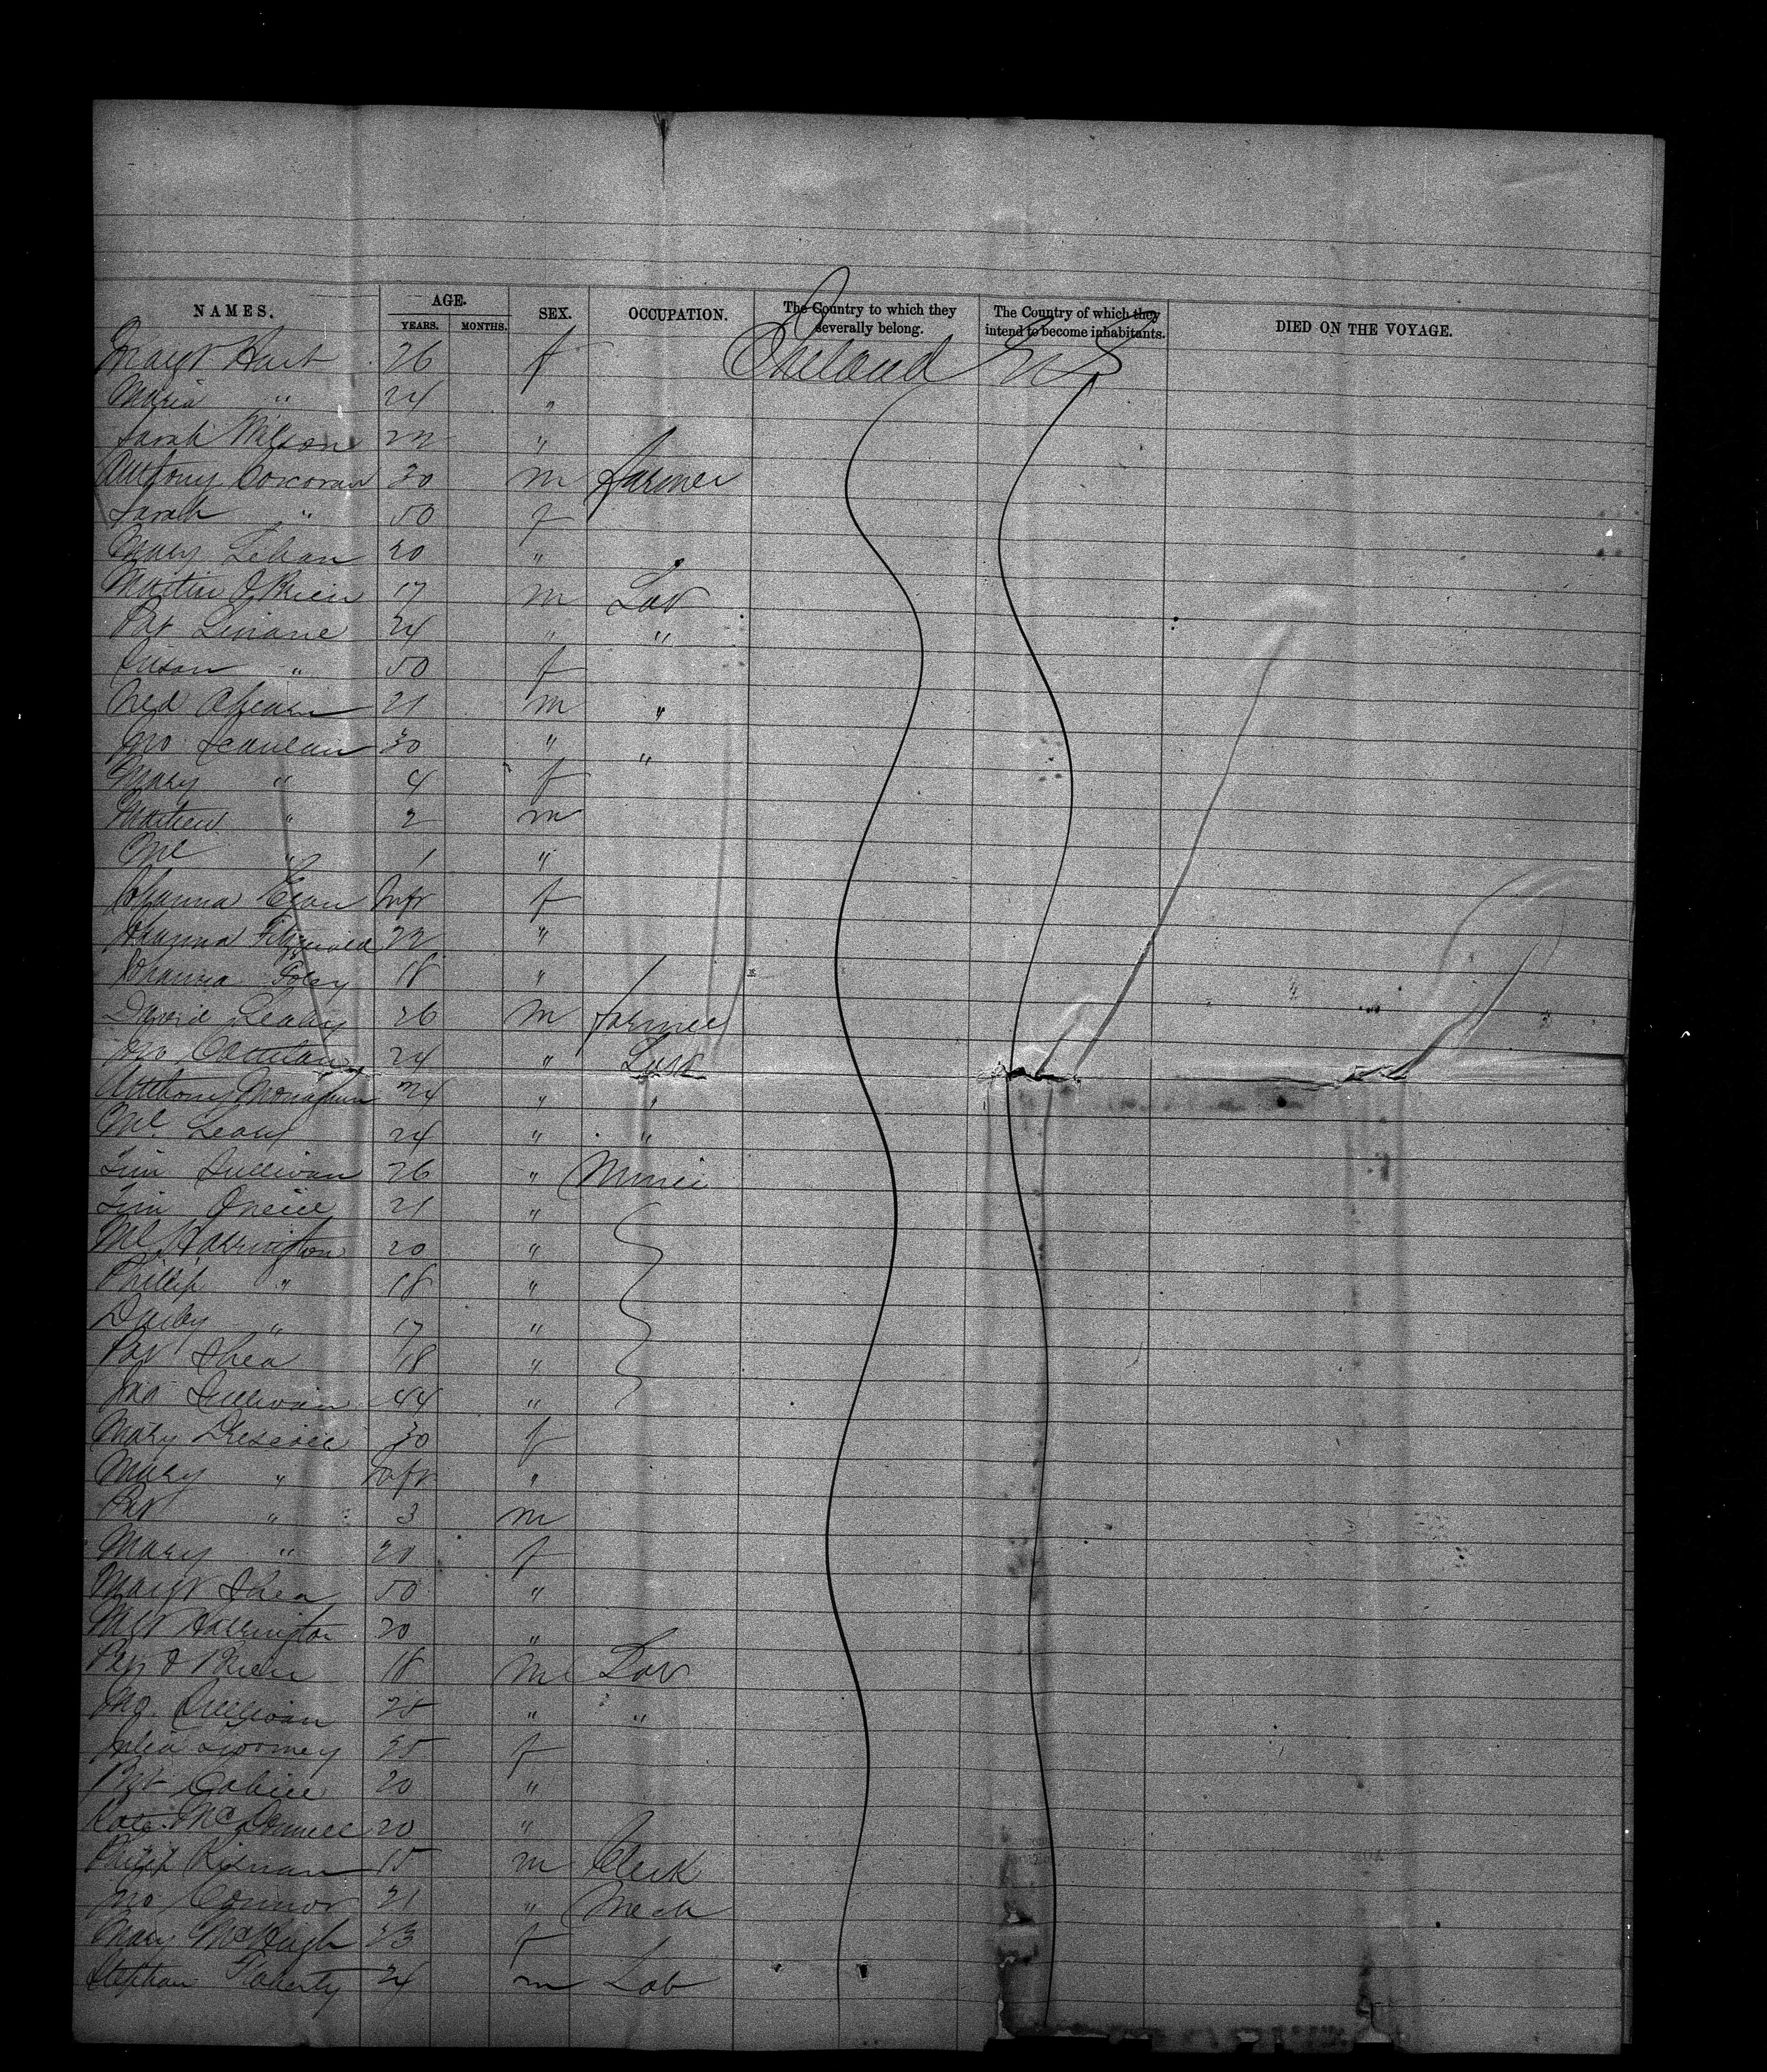 NAMES. AGE. SEX. OCCUPATION. The Country to which they severally belong. The Country of which they intend to become inhabitants. DIED ON THE VOYAGE.
YEARS. MONTHS.
Margt Hart 26 f Ireland U S
Maria " 24 "
Sarah Wilson 22 "
Anthony Corcoran 30 m Farmer
Sarah " 50 f
Mary Lehan 20 "
Martin O Brien 17 m Lab
Pat Linane 24 " "
Susan " 50 f
Ned Ahearn 21 m "
Jno Scanlan 30 " "
Mary " 4 f
Mathew " 2 m
Ml " 1 "
Johanna Egan Inft f
Johanna Fitzgerald 22 "
Johanna Foley 18 "
David Leahy 26 m farmer
Jno 24 "
Anthony Monaghan 24 " "
Ml Leary 24 " "
Tim Sullivan 26 " Miner
Tim Oneill 21 "
Ml Harrington 20 "
Phillip " 18 "
Darby " 17 "
Pat Shea 18 "
Jno Sullivan 44 "
Mary Driscoll 30 f
Mary " Inft "
Pat " 3 m
Mary " 20 f
Margt Shea 50 "
Mgt Harrington 20 "
O Brien 18 m Lab
Sullivan 25 " "
Julia Twomey 35 f
Cahill 20 "
Kate McDonnell 20 "
Philip Kiernan 15 m Clerk
Jno Connor 21 " Mech
Mary McHugh 23 f
Stephen Flaherty 24 m Lab